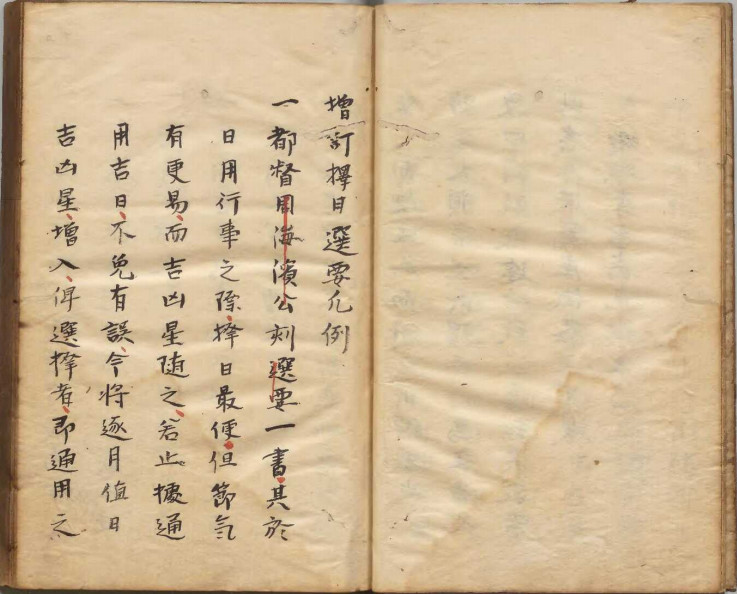 增訂擇日選要凡例
一都督周海濱公刻選要一書其於
日用行事之際擇日最便但節氣
有更易而吉凶星隨之若止據通
用吉日不免有誤今將逐月值日
吉凶星增入俾選擇者即通用之